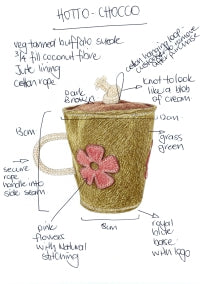 HOTTO-CHOCCO
veg tanned buffalo suede
3/4 fill coconut fibre
Jute lining
Cotton rope
cotton hanging loop
purchase
dark
brown
knot to look
like a blob
of cream
12cm
13cm
grass
green
secure
rope
handle into
side seam
8cm
pink
flowers
with Natural
stitching
royal
blue
base
with logo